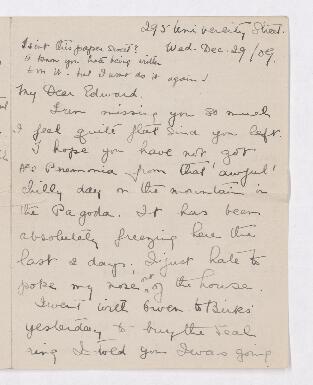 295 University Street.
Isn't this paper sweet?
Wed. Dec. 29/09.
I know you hate being written
to on it. but I wont do it again!
My Dear Edward.
I am missing you so much
I feel quite flat since you left.
I hope you have not got
Pneumonia from that 'awful'
chilly day on the mountain in
the Pagoda. It has been
absolutely freezing here the
last 2 days, I just hate to
poke my nose out of the house.
I went with Gwen to Birks
yesterday to buy the seal
ring I told you I was going